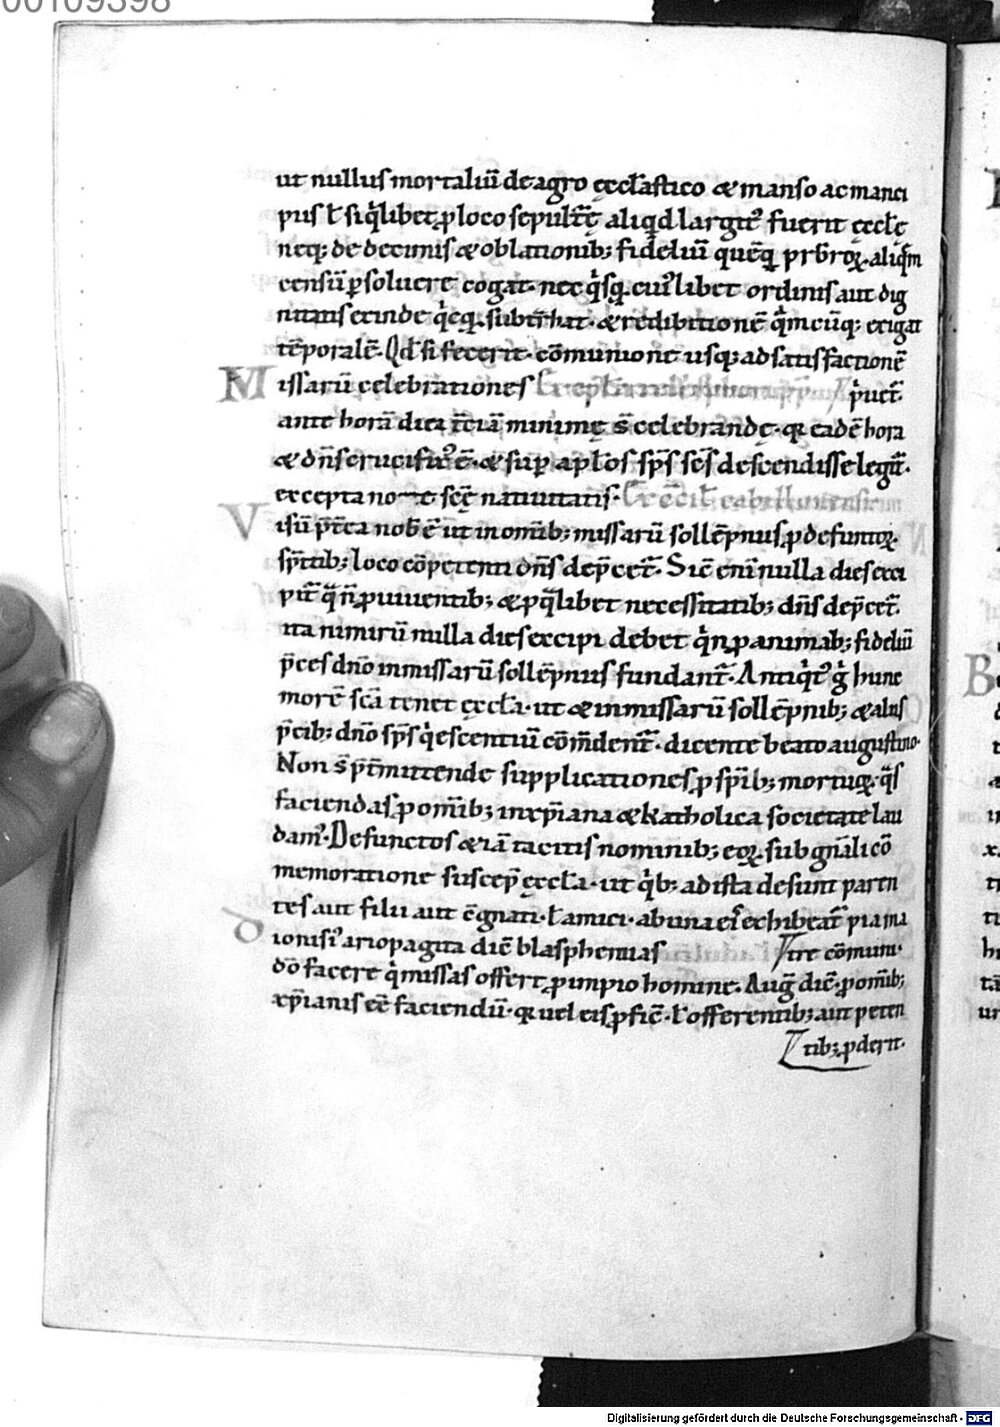 00109398
ut nullus mortaliū de agro ęccl̄astico & manso ac manci
piis ł si q̇libet ꝓ loco sepultr̄ę aliqid largitꝰ fuerit ęccłę
neq; de decimis & oblationib; fideliū quēq prb̄roꝝ aliqm
censū ꝑsoluere cogat. nec q̇sq cuiꝰlibet ordinis aut dig
nitatis exinde q̇cq subtrͣhat. & redibitionē q̇mcūq; exigat
tēporalē. Qd̄ si fecerit. cōmunione usq; ad satisfactionē
Missarū celebrationes ṗuet̄.
ante horā diei tc̄iā minimę s̄ celebrandę. q eadē hora
& dn̄s crucifixꝰ ē. & sup apłos sp̄s sc̄s descendisse legit̄.
excepta nocte sc̄ę natiuitatis. cabillunensium
Visū pt̄ea nob̄ ē ut in om̄ib; missarū sollēpniis ꝓ defunctoꝝ
sp̄itib; loco cōpetenti dn̄s dep̄cet̄. Sic̄ eni nulla dies exci
pit̄ q̄ n̄ ꝓ uiuentib; & ꝓ q̇libet necessitatib; dn̄s dep̄cet̄.
ita nimirū nulla dies excipi debet q̇n ꝓ animab; fideliū
p̄ces dn̄o in missarū sollēpniis fundant̄. Antiq̇tꝰ ġ hunc
morē sc̄a tenet ęccła. ut & in missarū sollēpnib; & aliis
p̄cib; dn̄o sp̄s q̇escentiū cōmdent̄. dicente beato augustino.
Non s̄ p̄tmittende supplicationes ꝓ sp̄ib; mortuoꝝ. q̄s
faciendas ꝓ om̄ib; in xp̄iana & katholica societate lau
damꝰ. Defunctos & iā tacitis nominib; eoꝝ sub gn̄ali cō
memoratione suscep̄ ęccła. ut q̇b; ad ista desunt paren
tes aut filii aut c̄gnati. ł amici. ab una eis exhibeat̄ pia ma
dionisiꝰ ariopagita dic̄ blasphemias tre cōmuni.
dō facere q̇ missas offert ꝓ impio homine. Auḡ dic̄. ꝓ om̄ib;
xp̄ianis ēē faciendū. q uel eis ꝓfic̄. ł offerentib; aut peten
tib; ꝓderit.
Digitalisierung gefördert durch die Deutsche Forschungsgemeinschaft - DFG